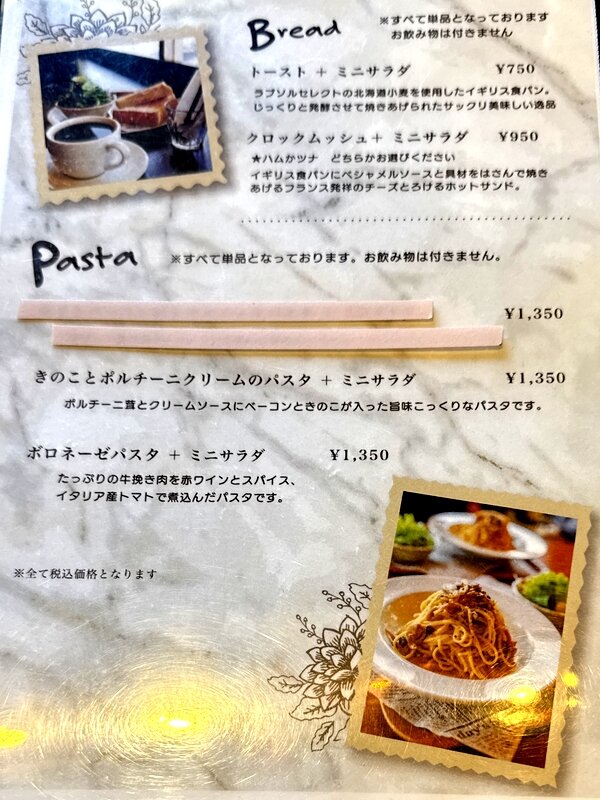 Bread
※すべて単品となっております
お飲み物は付きません
トースト + ミニサラダ ¥750
ラブソルセレクトの北海道小麦を使用したイギリス食パン。
じっくりと発酵させて焼きあげられたサックリ美味しい逸品
クロックムッシュ+ ミニサラダ ¥950
★ハムかツナ どちらかお選びください
イギリス食パンにベシャメルソースと具材をはさんで焼き
あげるフランス発祥のチーズとろけるホットサンド。
Pasta ※すべて単品となっております。お飲み物は付きません。
¥1,350
きのことポルチーニクリームのパスタ + ミニサラダ ¥1,350
ポルチーニ茸とクリームソースにベーコンときのこが入った旨味こっくりなパスタです。
ボロネーゼパスタ + ミニサラダ ¥1,350
たっぷりの牛挽き肉を赤ワインとスパイス、
イタリア産トマトで煮込んだパスタです。
※全て税込価格となります